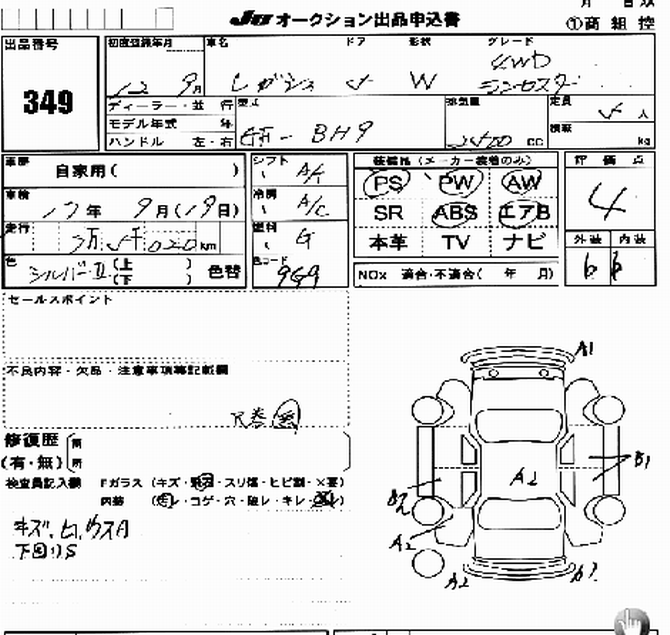 月
JU オークション出品申込書
①商 組 控
出品番号 初度登録年月 車名 ドア 形状 グレード
349
12 9月 レガシィ 5 W 4WD
ランカスター
ディーラー・並 行 型式 排気量 定員 5 人
モデル年式 年 積載
ハンドル 左・右 GF- BH9 2500 cc kg
車歴 自家用( ) シフト A/T 装備品(メーカー装着のみ) 評 価 点
PS PW AW
車検 17年 9月(19日) 冷房 A/C 4
SR ABS エアB
走行 3万5千020km 燃料 G 外装 内装
本革 TV ナビ
色 シルバーII (上 下 ) 色替 色コード 9G9 6 b
NOx 適合・不適合( 年 月)
セールスポイント
不良内容・欠品・注意事項等記載欄
R券 無
修復歴 箇
(有・無) 所
検査員記入欄 Fガラス (キズ・飛石・スリ傷・ヒビ割・×要)
内装 (汚レ・コゲ・穴・破レ・キレ・レ)
キズ、
下回りS
A1
A2
B1
B2
A2
A2